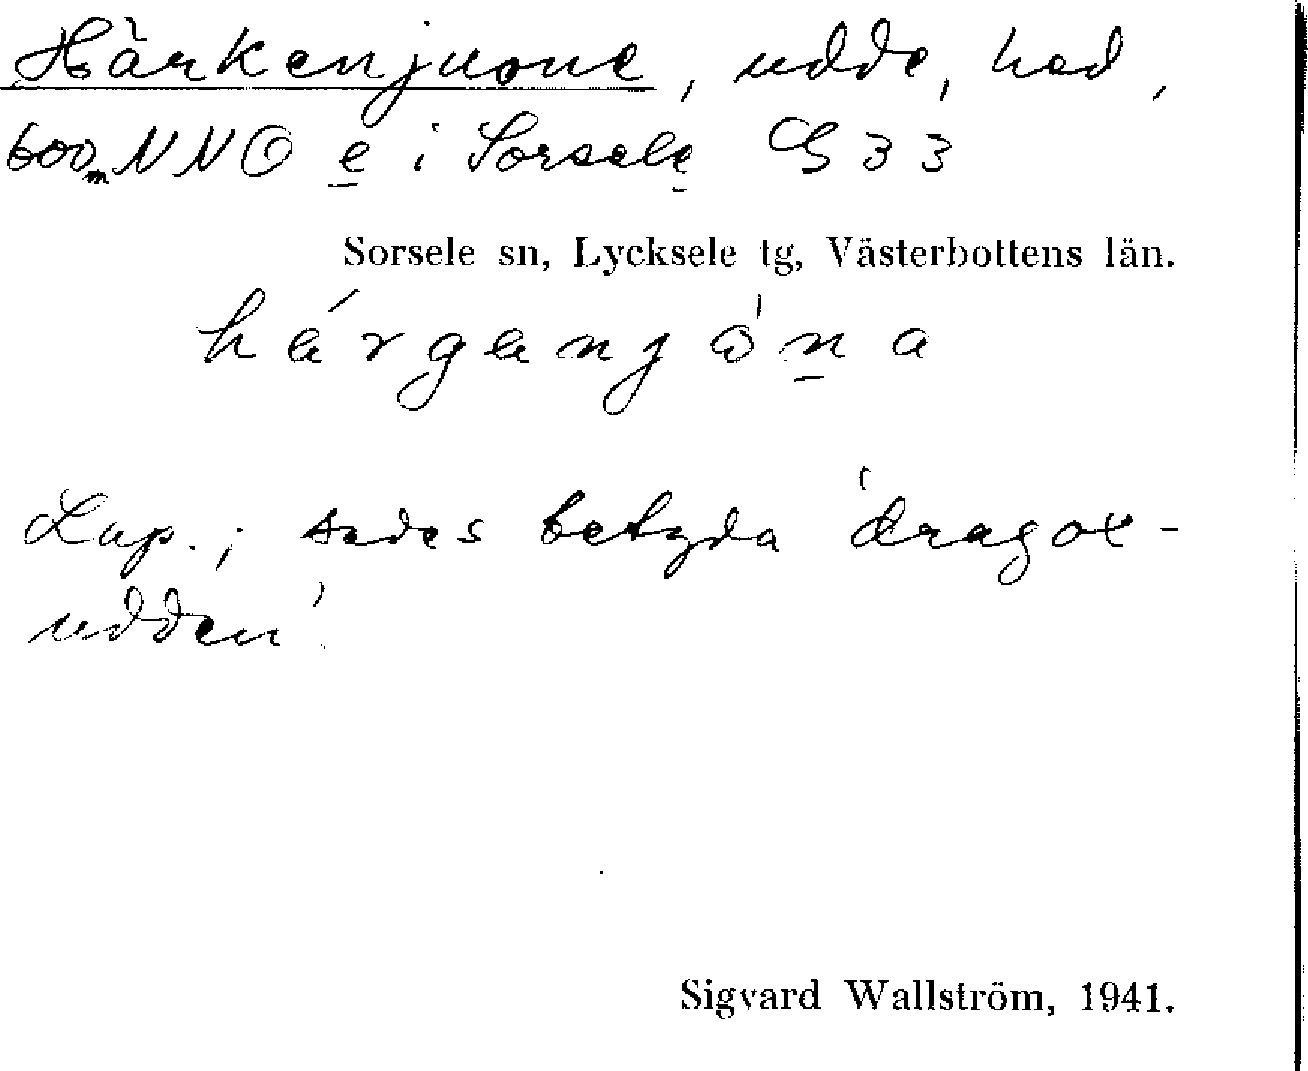 Härkenjuone, udde, hed,
600 m NNO e i Sorsele G 33
Sorsele sn, Lycksele tg, Västerbottens län.
Lap.; sades betyda 'dragox-
udden'.
Sigvard Wallström, 1941.